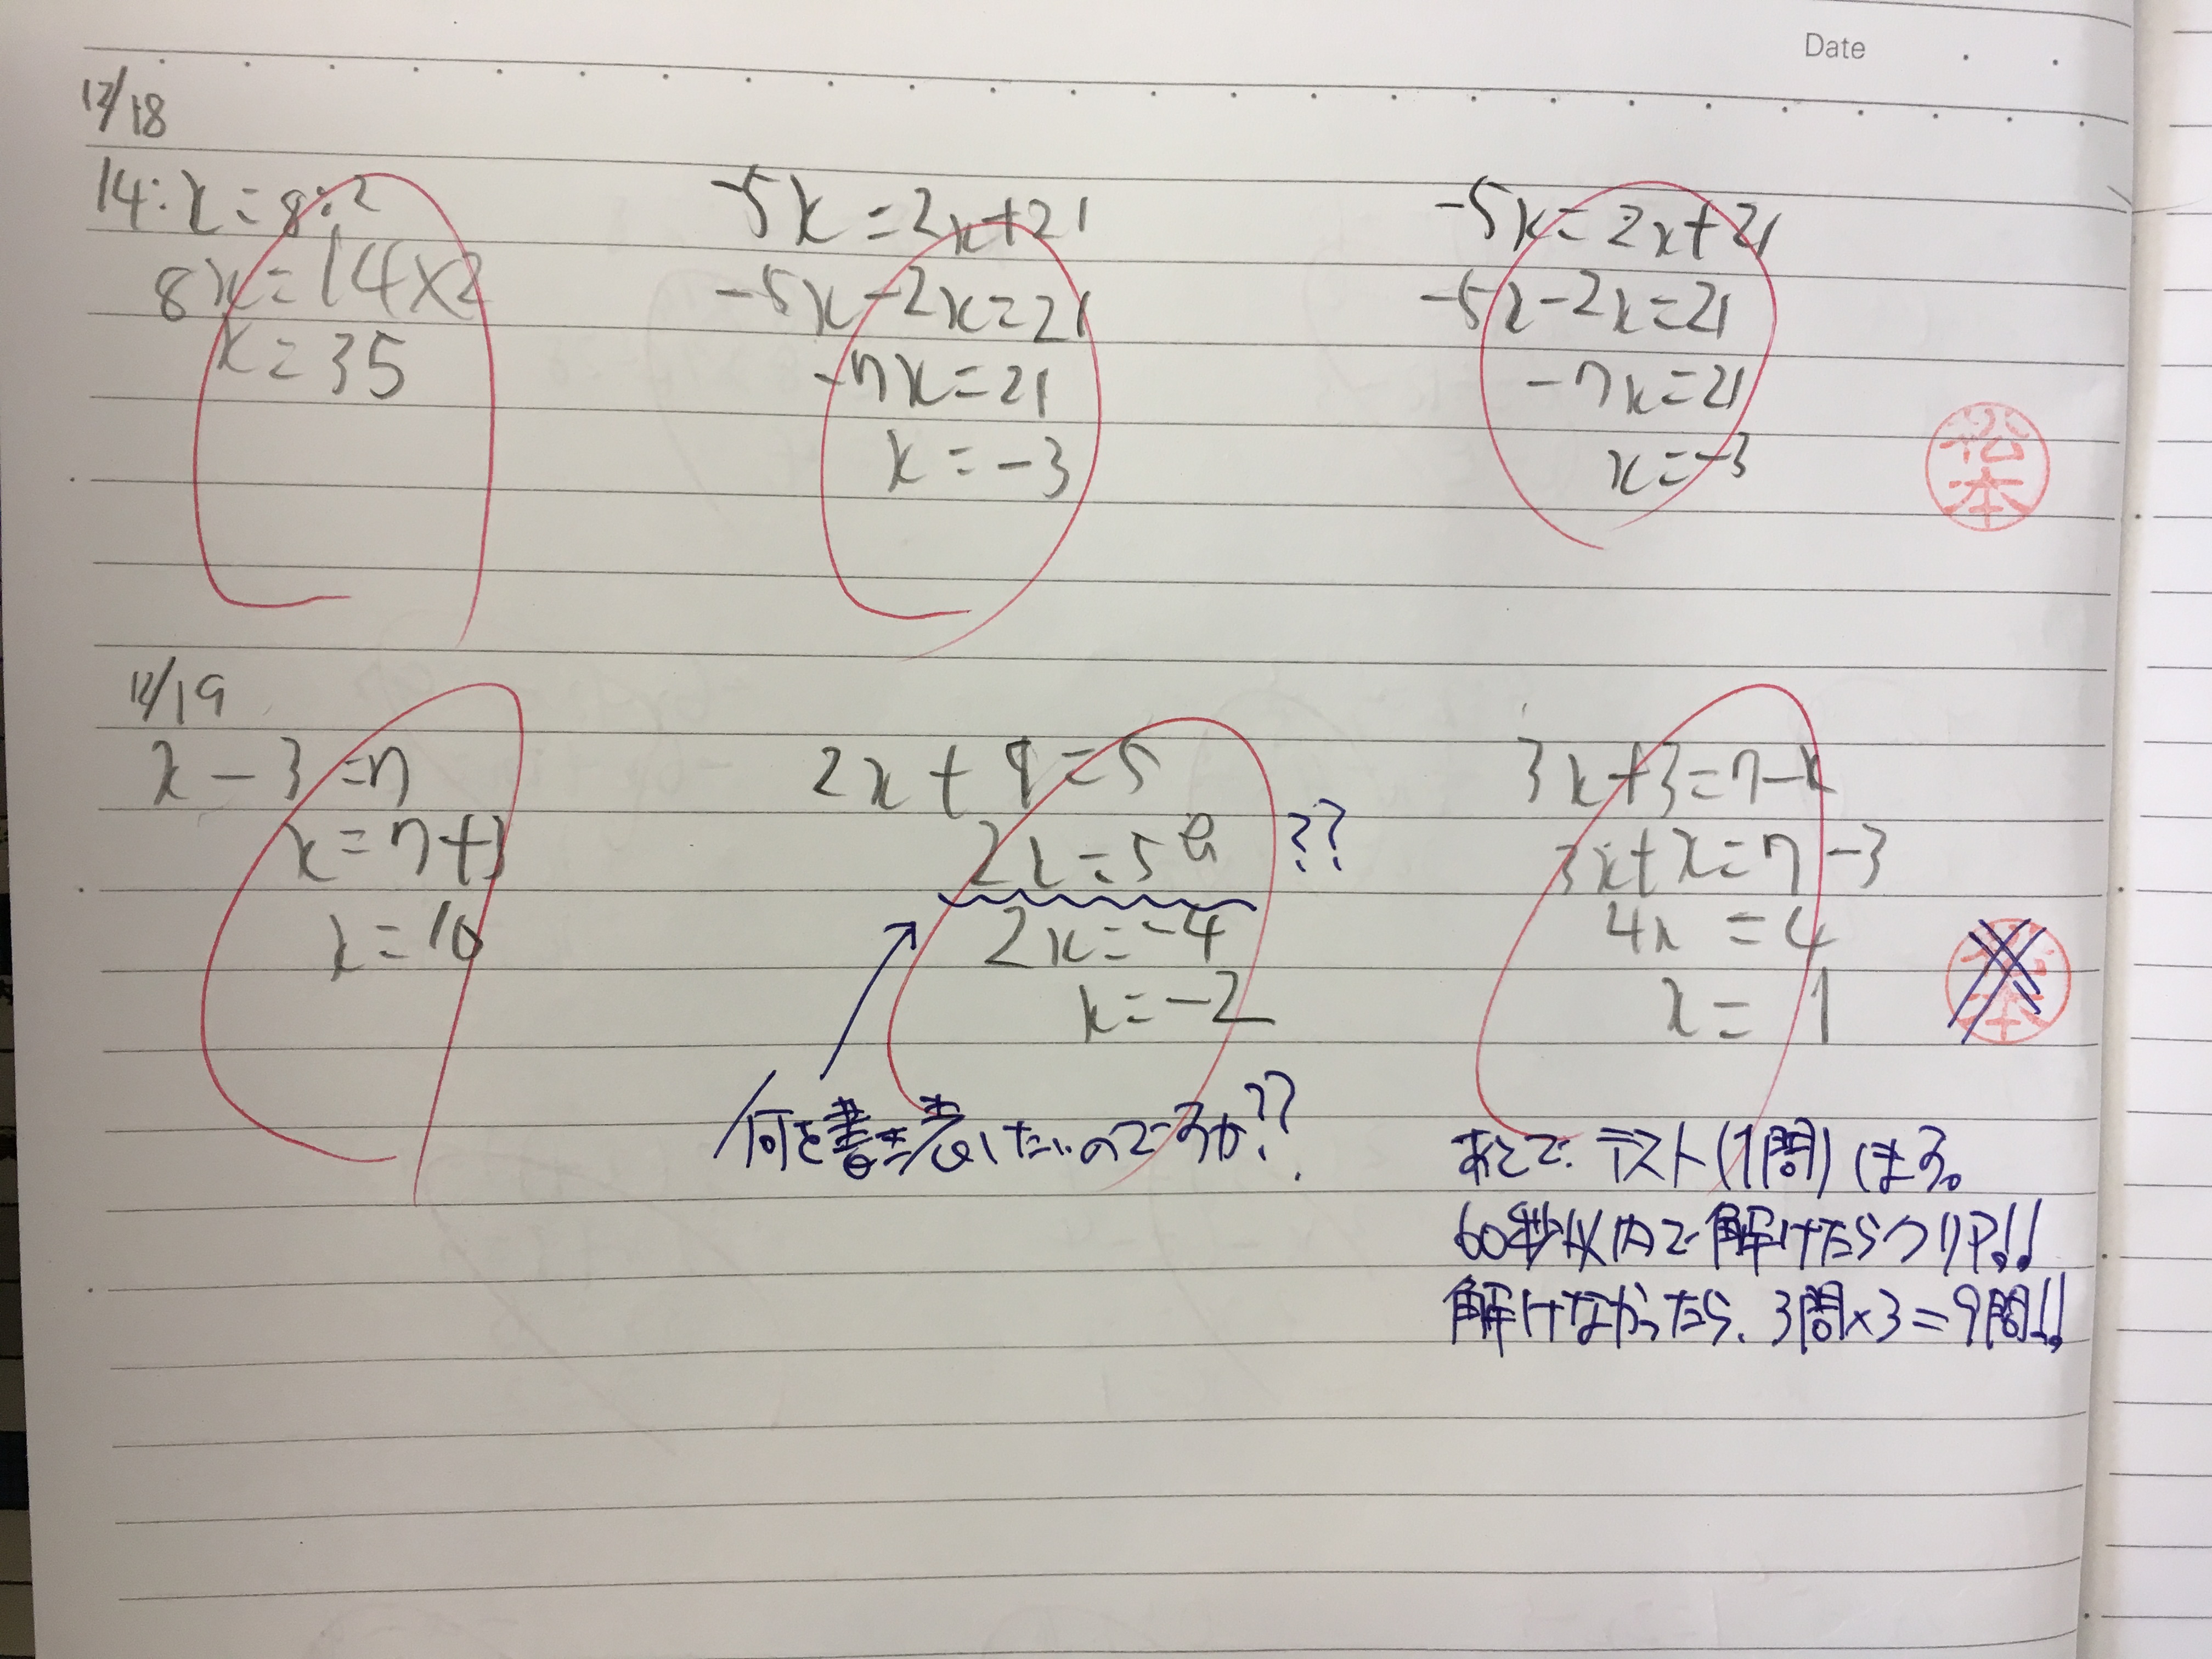 Date
12/18
14:x=8:2
8x=14×2
x=35
-5x=2x+21
-5x-2x=21
-7x=21
x=-3
-5x=2x+21
-5x-2x=21
-7x=21
x=-3
松本
12/19
x-3=7
x=7+3
x=10
2x+9=5
2x=5
??
2x=-4
x=-2
何を書き表したいのですか??
3x+3=7-x
3x+x=7-3
4x=4
x=1
松本
あとで、テスト(1問)します。
60秒以内で解けたらクリア!!
解けなかったら、3問×3=9問!!